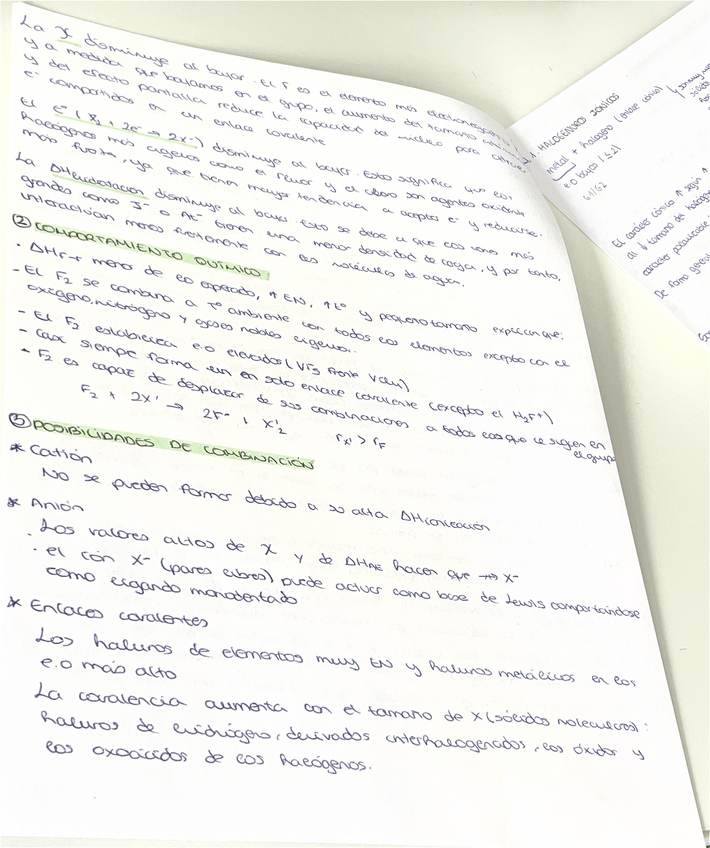 La χ disminuye al bajar. El F es el elemento más electronegativo,
y a medida que bajamos en el grupo, el aumento del tamaño
y del efecto pantalla reduce la capacidad del núcleo para atraer
e- compartidos en un enlace covalente
El Eº (X2 + 2e- → 2X-) disminuye al bajar. Esto significa que los
halógenos más ligeros como el flúor y el cloro son agentes oxidante
más fuerte, ya que tienen mayor tendencia a aceptar e- y reducirse.
La ΔHhidratación disminuye al bajar. Esto se debe a que los iones más
grandes como I- o At- tienen una menor densidad de carga, y por tanto,
interactúan menos fuertemente con las moléculas de agua.
② COMPORTAMIENTO QUÍMICO:
· ΔHF-F menor de lo esperado, ↑ EN, ↑ Eº y pequeño tamaño explican que:
- El F2 se combina a Tº ambiente con todos los elementos excepto con el
oxígeno, nitrógeno y gases nobles ligeros.
- El F2 estabiliza e.o elevados (VF5 frente VCl4)
- Casi siempre forma un en solo enlace covalente (excepto el H2F+)
- F2 es capaz de desplazar de sus combinaciones a todos los que le siguen en
el grupo
F2 + 2X' → 2F- + X'2 rX' > rF
③ POSIBILIDADES DE COMBINACIÓN
* Catión
No se pueden formar debido a su alta ΔHionización
* Anión
· Los valores altos de χ y de ΔHAE hacen que → X-
· el ión X- (pares libres) puede actuar como base de Lewis comportándose
como ligando monodentado
* Enlaces covalentes
Los haluros de elementos muy EN y haluros metálicos en los
e.o más alto
La covalencia aumenta con el tamaño de X (sólidos moleculares):
haluros de hidrógeno, derivados interhalogenados, los óxidos y
los oxoácidos de los halógenos.
1. HALOGENUROS IÓNICOS
metal + halógeno (enlace iónico)
e.o bajo (≤2)
G1/G2
El carácter iónico ↑ según ↑
al ↓ tamaño del halógeno
carácter polarizable
De forma general